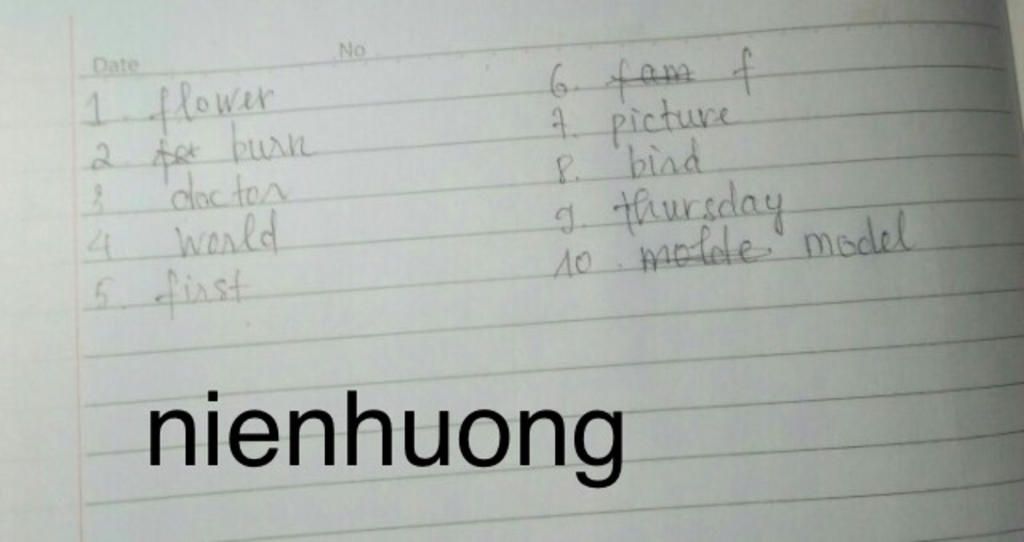 Date No
1 flower
2 for burn
3 doctor
4 world
5. first
6. fam f
7. picture
8. bird
9. thursday
10. molde. model
nienhuong